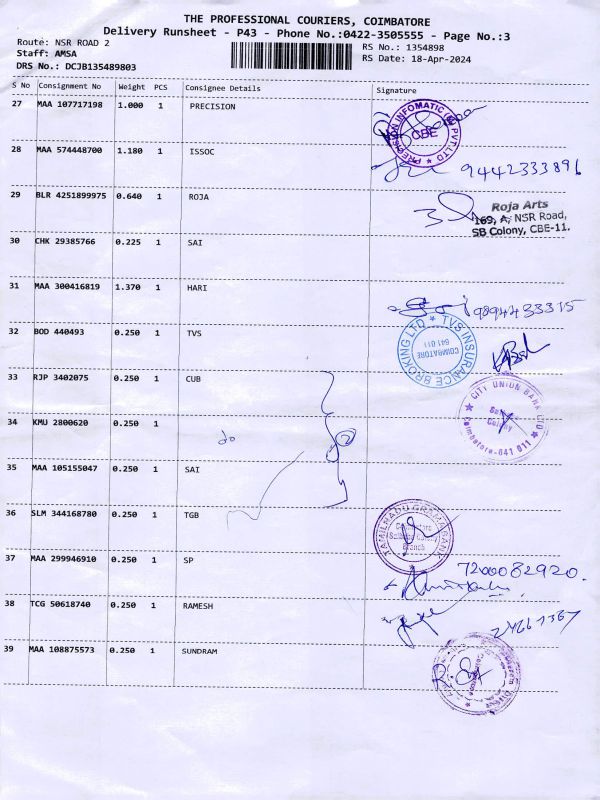 THE PROFESSIONAL COURIERS, COIMBATORE
Delivery Runsheet - P43 - Phone No.:0422-3505555 - Page No.:3
Route: NSR ROAD 2
RS No.: 1354898
Staff: AMSA
RS Date: 18-Apr-2024
DRS No.: DCJB135489803
S No Consignment No Weight PCS Consignee Details Signature
27 MAA 107717198 1.000 1 PRECISION
PRECISION INFOMATIC (M) PVT LTD
CBE
28 MAA 574448700 1.180 1 ISSOC
9442333896
29 BLR 4251899975 0.640 1 ROJA
Roja Arts
169, A, NSR Road,
SB Colony, CBE-11.
30 CHK 29385766 0.225 1 SAI
31 MAA 300416819 1.370 1 HARI
9894433315
32 BOD 440493 0.250 1 TVS
TVS INSURANCE BROKING LTD
COIMBATORE
641 011
33 RJP 3402075 0.250 1 CUB
CITY UNION BANK LTD
Colony
Coimbatore-641 011
34 KMU 2800620 0.250 1 do
2
35 MAA 105155047 0.250 1 SAI
36 SLM 344168780 0.250 1 TGB
TAMILNADU GRAMA BANK
Coimbatore
Branch
37 MAA 299946910 0.250 1 SP
7200082920.
38 TCG 50618740 0.250 1 RAMESH
39 MAA 108875573 0.250 1 SUNDRAM